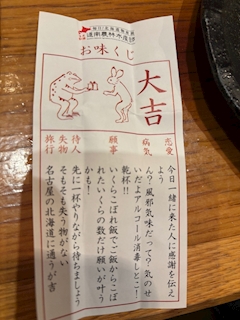 毎日!北海道物産展
道南農林水産部
お味くじ
大吉
恋愛 今日一緒に来た人に感謝を伝え
よう
病気 ん?風邪気味だって?気のせ
いだよアルコール消毒しとこ!
乾杯!!
願事 いくらこぼれ飯でご飯からこぼ
れたいくらの数だけ願いが叶う
かも!
待人 先に一杯やりながら待ちましょう
失物 そもそも失う物がない
旅行 名古屋の北海道に通うが吉